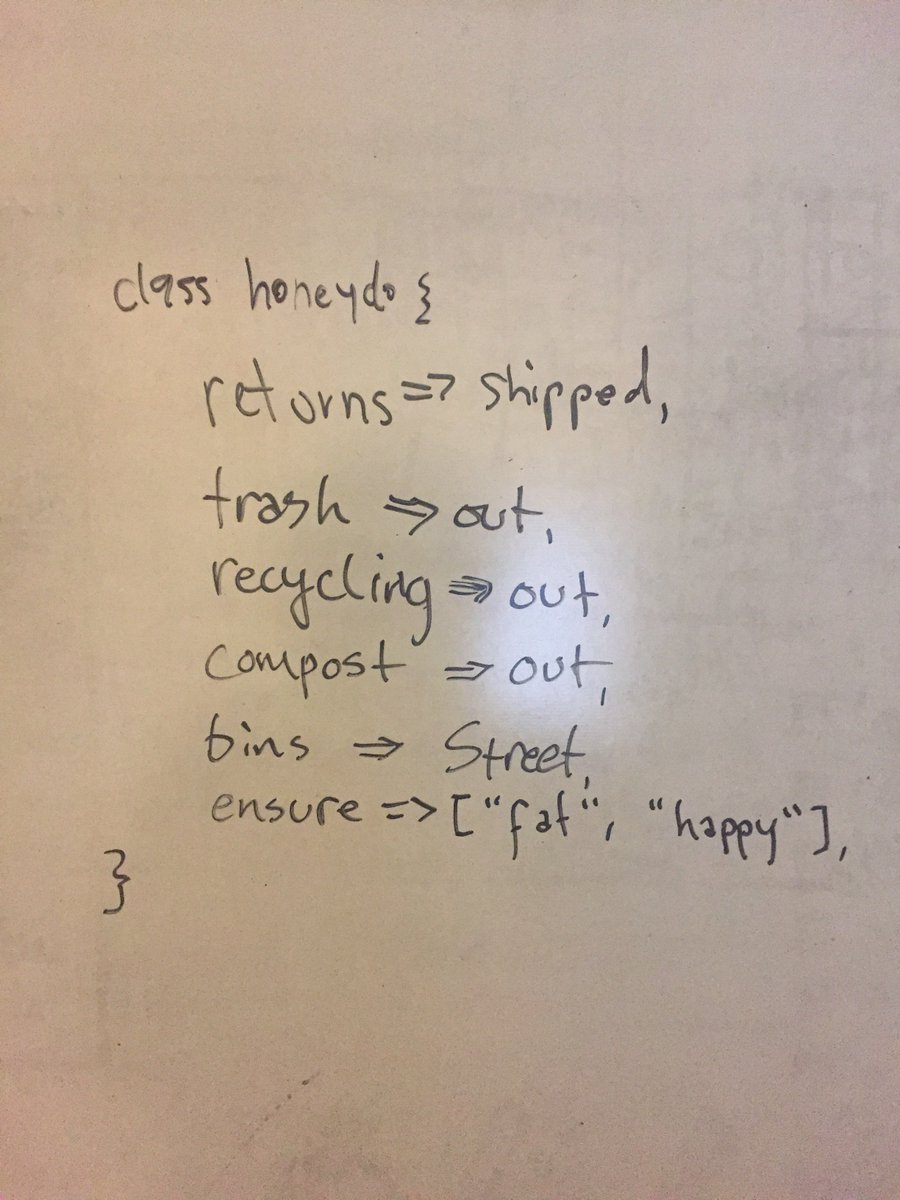 class honeydo {
returns => shipped,
trash => out,
recycling => out,
compost => out,
bins => Street,
ensure => ["fat", "happy"],
}